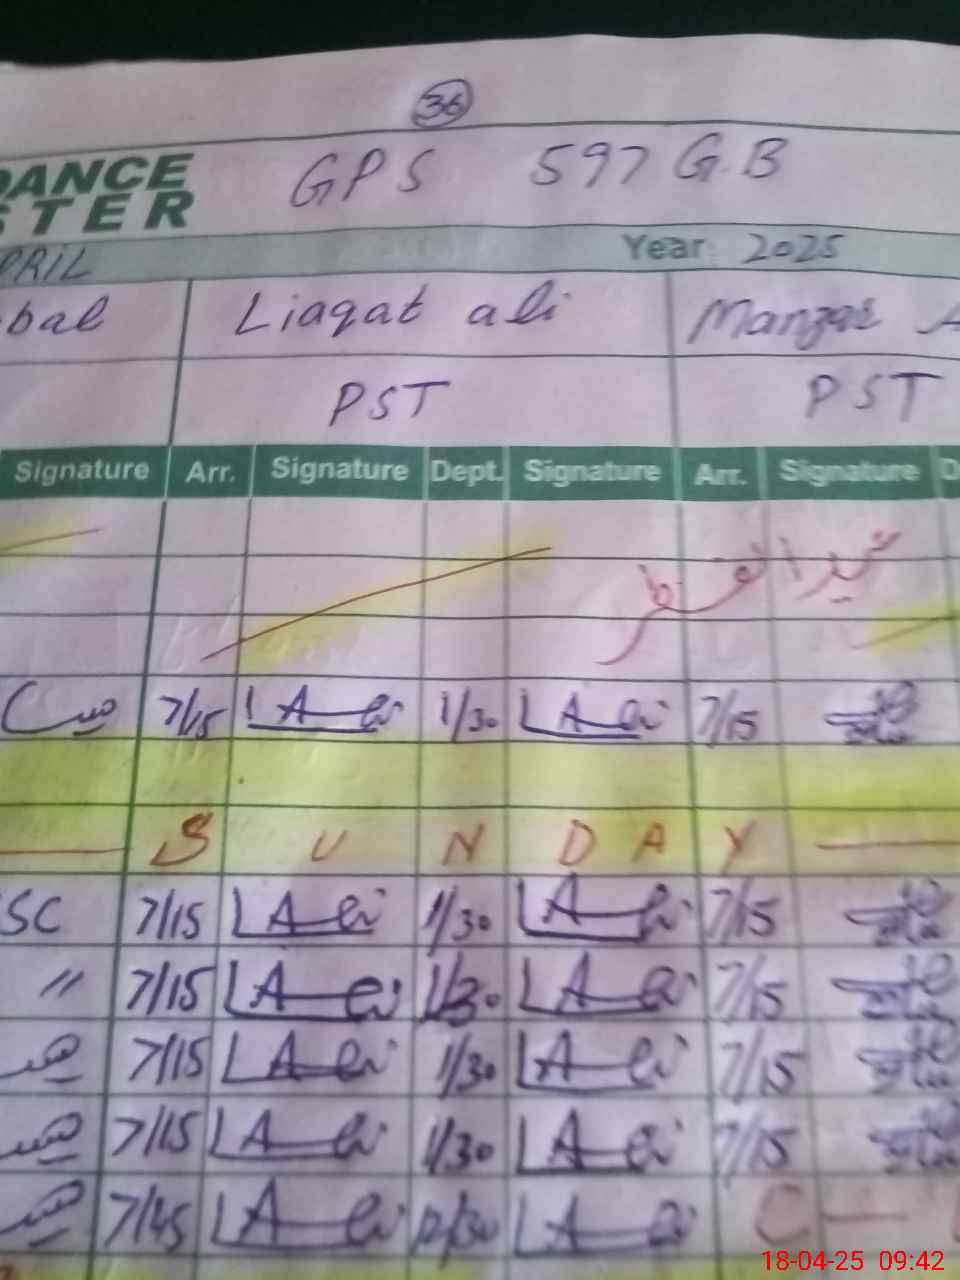 36
DANCE GPS 597 G.B
STER
PRIL Year 2025
bal Liaqat ali Manzar A
PST PST
Signature Arr. Signature Dept. Signature Arr. Signature D
عیدالفطر
7/15 LA ali 1/30 LA ali 7/15
S U N D A Y
SC 7/15 LA ali 1/30 LA ali 7/15
〃 7/15 LA ali 1/30 LA ali 7/15
7/15 LA ali 1/30 LA ali 7/15
7/15 LA ali 1/30 LA ali 7/15
7/45 LA ali 12/30 LA ali C — L
18-04-25 09:42